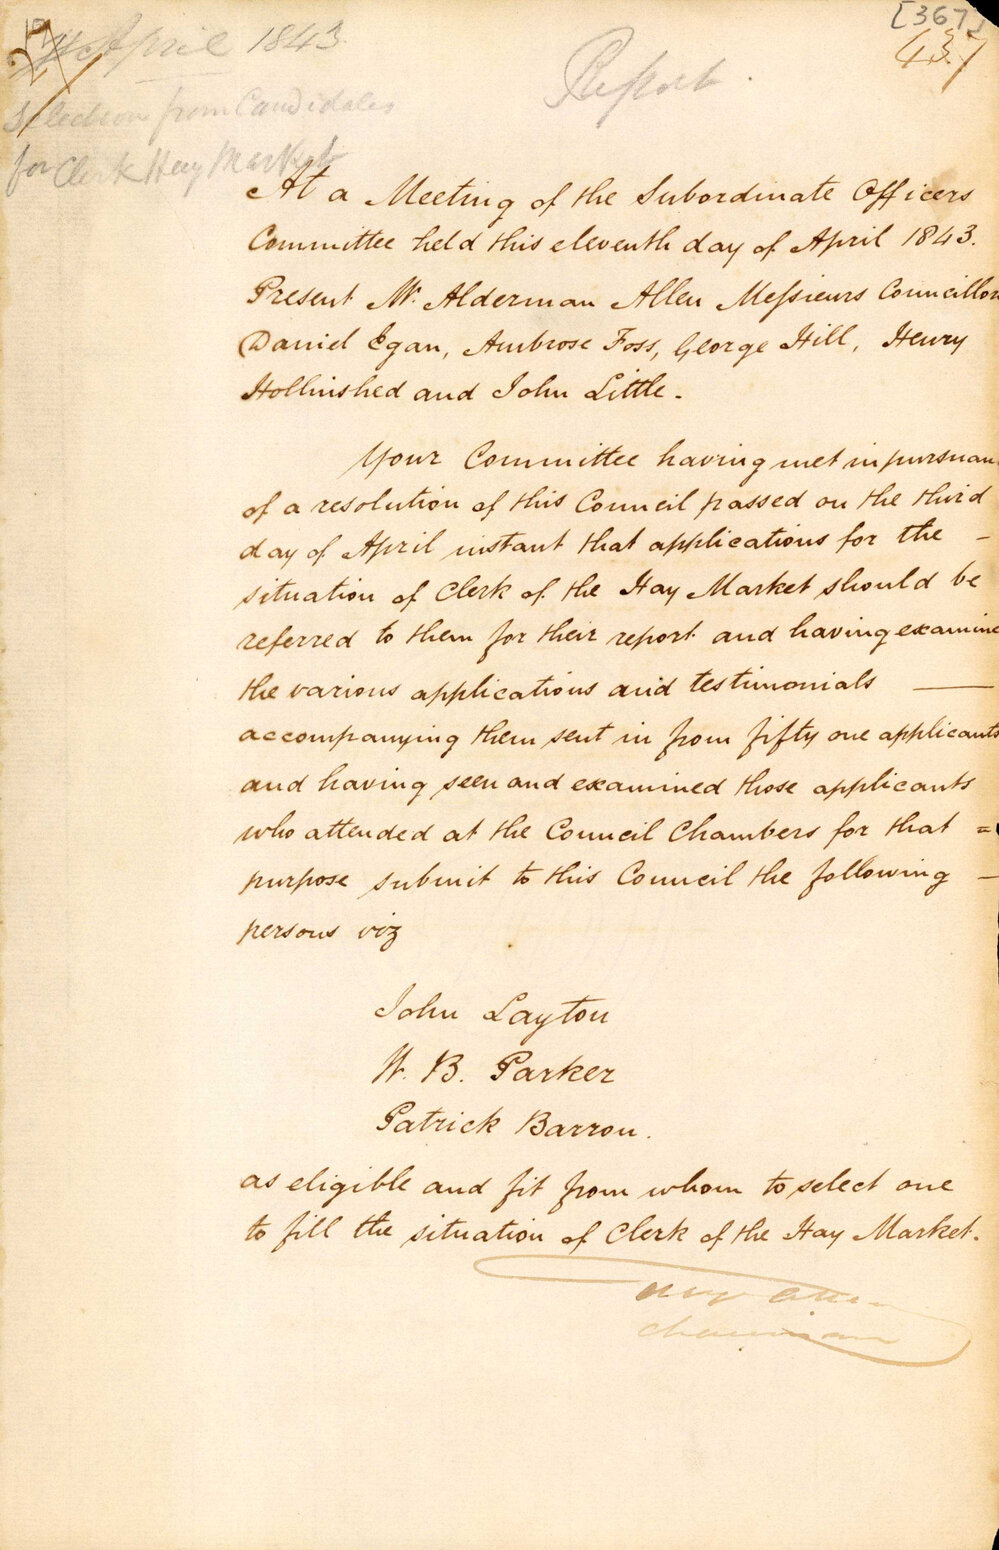 [367]
437
April 1843
Report.
Selection from Candidates
for Clerk Hay Market
At a Meeting of the Subordinate Officers
Committee held this eleventh day of April 1843.
Present Mr. Alderman Allen Messieurs Councillors
Daniel Egan, Ambrose Foss, George Hill, Henry
Hollinshed and John Little.
Your Committee having met in pursuan
of a resolution of this Council passed on the third
day of April instant that applications for the –
situation of Clerk of the Hay Market should be
referred to them for their report and having examine
the various applications and testimonials —
accompanying them sent in from fifty one applicants
and having seen and examined those applicants
who attended at the Council Chambers for that =
purpose submit to this Council the following –
persons viz
John Layton
W. B. Parker
Patrick Barron.
as eligible and fit from whom to select one
to fill the situation of Clerk of the Hay Market.
Allen
Chairman